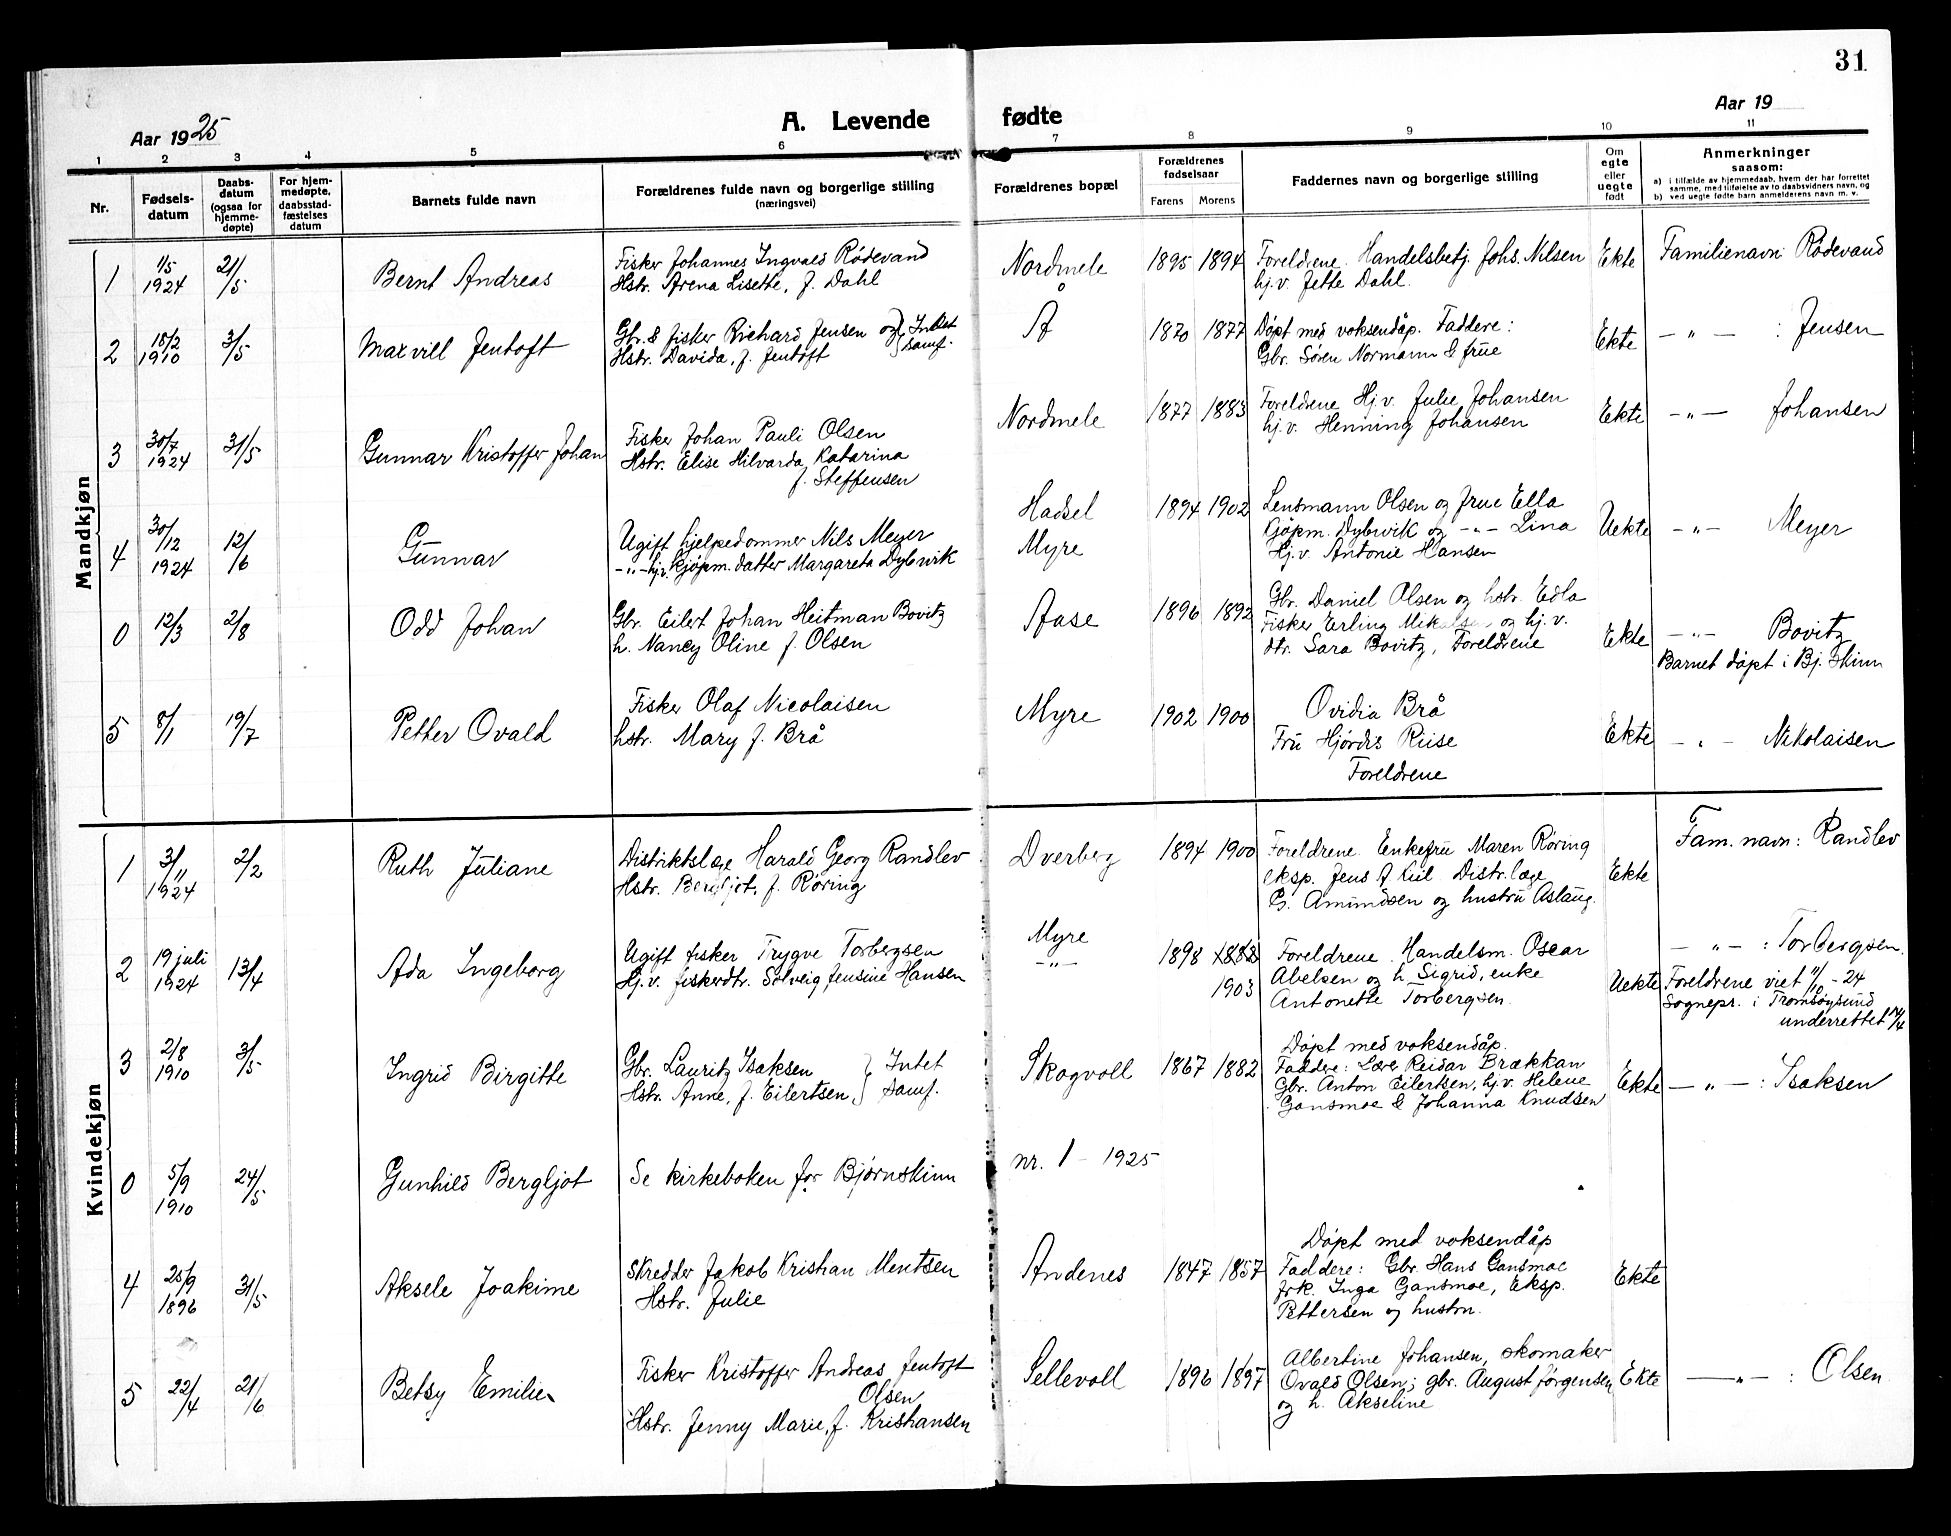 31
Aar 1925
A. Levende fødte
Aar 19
1 2 3 4 5 6 7 8 9 10 11
Nr.
Fødsels-
datum
Daabs-
datum
(ogsaa for
hjemme-
døpte)
For hjem-
medøpte,
daabsstad-
fæstelses
datum
Barnets fulde navn
Forældrenes fulde navn og borgerlige stilling
(næringsvei)
Forældrenes bopæl
Forældrenes
fødselsaar
Farens Morens
Faddernes navn og borgerlige stilling
Om
egte
eller
uegte
født
Anmerkninger
saasom:
a) i tilfælde av hjemmedaab, hvem der har forrettet
samme, med tilføielse av to daabsvidners navn, og
b) ved uegte fødte barn anmelderens navn m. v.
Mandkjøn
1
1/5
1924
21/5
Bernt Andreas
Fisker Johannes Ingvald Rødevand
Hstr. Arena Lisette, f. Dahl
Nordmele
1895 1894
Foreldrene. Handelsbetj. Johs. Nilsen
hj.v. Jette Dahl.
Ekte
Familienavn: Rødevand
2
18/2
1910
3/5
Maxvill Jentoft
Gbr. & fisker Richard Jensen og } Intet
Hstr. Davida, f. Jentoft } samf.
Å
1870 1877
Døpt med voksendåp. Faddere:
Gbr. Søren Normann & frue
Ekte
— " — : Jensen
3
30/7
1924
31/5
Gunnar Kristoffer Johan
Fisker Johan Pauli Olsen
Hstr. Elise Hilvarda Katarina
f. Steffensen
Nordmele
1877 1883
Foreldrene Hj.v. Julie Johansen
hj.v. Henning Johansen
Ekte
— " — Johansen
4
30/12
1924
12/6
Gunnar
Ugift hjelpedommer Nils Meyer
— " — hj.v. kjøpm. datter Margareta Dybwik
Hadsel
Myre
1894 1902
Lensmann Olsen og frue Ella
Kjøpm. Dybwik og — " — Lina
Hj.v. Antonie Hansen
Uekte
— " — Meyer
0
12/3
2/8
Odd Johan
Gbr. Eilert Johan Heitman Bovitz
h. Nancy Oline f. Olsen
Aase
1896 1892
Gbr. Daniel Olsen og hstr. Edla
Fisker Erling Mikalsen og hj.v.
dtr. Sara Bovitz, Foreldrene
Ekte
— " — Bovitz
Barnet døpt i Bj. skinn
5
8/1
19/7
Petter Ovald
Fisker Olaf Nicolaisen
hstr. Mary f. Brå
Myre
1902 1900
Ovidia Brå
Fru Hjørdis Riise
Foreldrene
Ekte
— " — Nikolaisen
Kvindekjøn
1
3/11
1924
2/2
Ruth Juliane
Distriktslæge Harald Georg Randlev
Hstr. Bergljot, f. Røring
Dverberg
1894 1900
Foreldrene. Enkefru Maren Røring
eksp. Jens A Kiil Distr. læge
G. Amundsen og hustru Aslaug.
Ekte
Fam. navn: Randlev
2
19 juli
1924
13/4
Ada Ingeborg
Ugift fisker Trygve Torbergsen
Hj.v. fiskerdtr. Solveig Jensine Hansen
Myre
— " —
1898 1882
1903
Foreldrene. Handelsm. Oscar
Abelsen og h. Sigrid, enke
Antonette Torbergsen.
Uekte
— " — : Torbergsen.
Foreldrene viet 11/10 - 24
Sognepr. i Tromsøysund
underrettet 14/4
3
2/8
1910
3/5
Ingrid Birgitte
Gbr. Lauritz Isaksen } Intet
Hstr. Anne, f. Eilertsen, } samf.
Skogvoll
1867 1882
Døpt med voksendåp.
Faddere: Lære Reidar Brækkan
Gbr. Anton Eilertsen, hj.v. Helene
Gansmoe & Johanna Knudsen
Ekte
— " — : Isaksen
0
5/9
1910
24/5
Gunhild Bergljot
Se kirkeboken for Bjørnskinn
nr. 1 - 1925
4
25/9
1896
31/5
Aksele Joakime
Skredder Jakob Kristian Mentsen
Hstr. Julie
Andenes
1847 1857
Døpt med voksendåp
Faddere: Gbr. Hans Gansmoe
frk. Inga Gansmoe, Eksp.
Pettersen og hustru.
Ekte
5
22/4
21/6
Betsy Emilie
Fisker Kristoffer Andreas Jentoft
Olsen
Hstr. Jenny Marie, f. Kristiansen
Sellevoll
1896 1897
Albertine Johansen, skomaker
Ovald Olsen; gbr. August Jørgensen
og h. Akseline
Ekte
— " — : Olsen